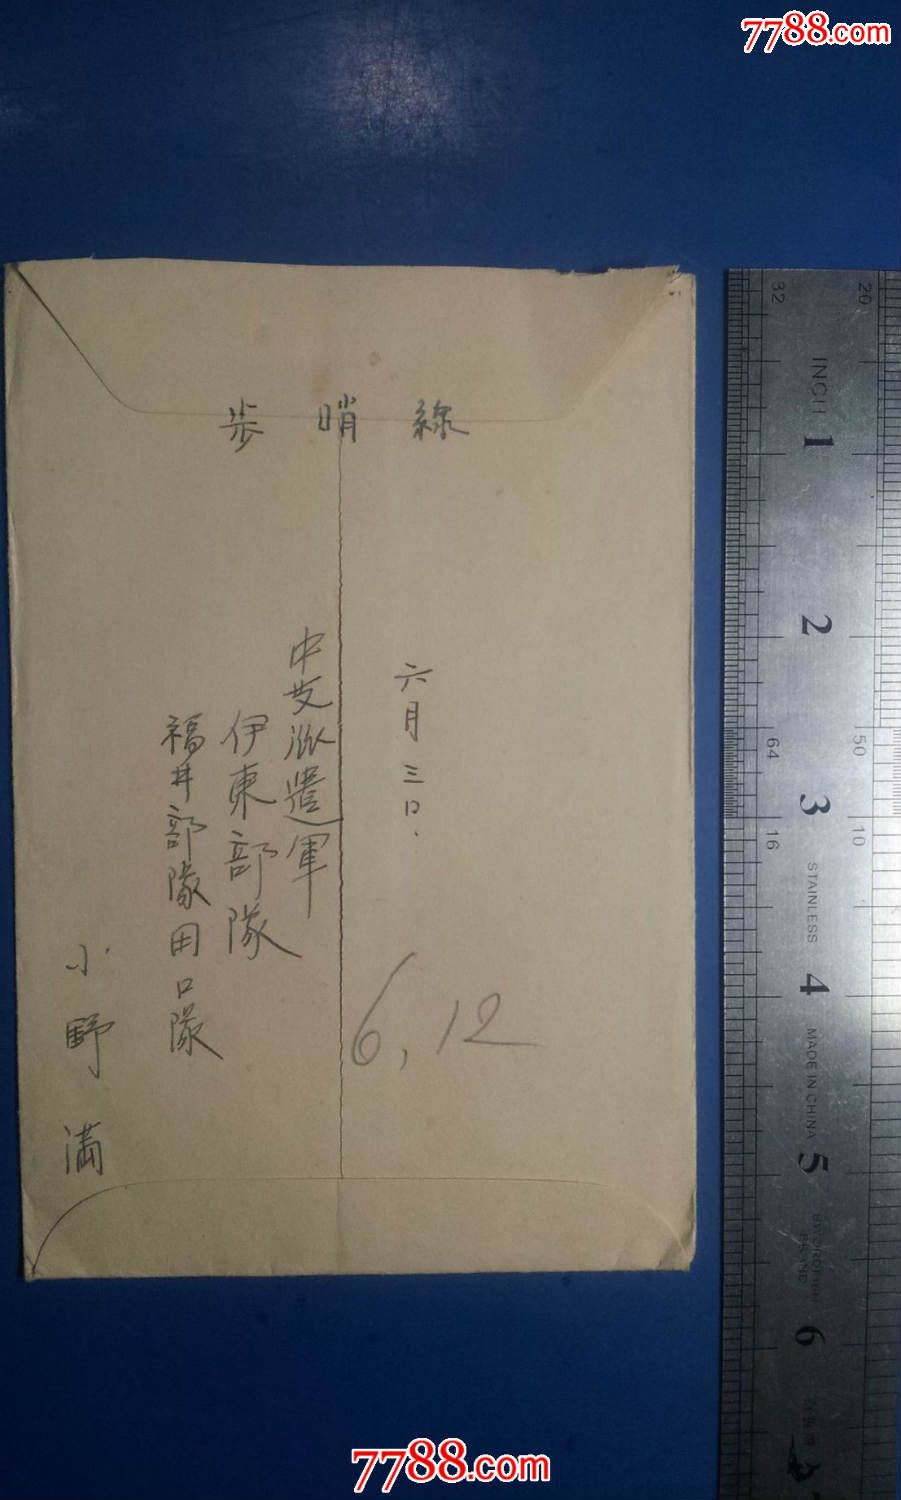 7788.com
歩哨線
六月三日.
中支派遣軍
伊東部隊
福井部隊田口隊
小野満
6,12
32
20
INCH
1
2
64
50
3
16
10
STAINLESS
4
MADE IN CHINA
5
6
7788.com